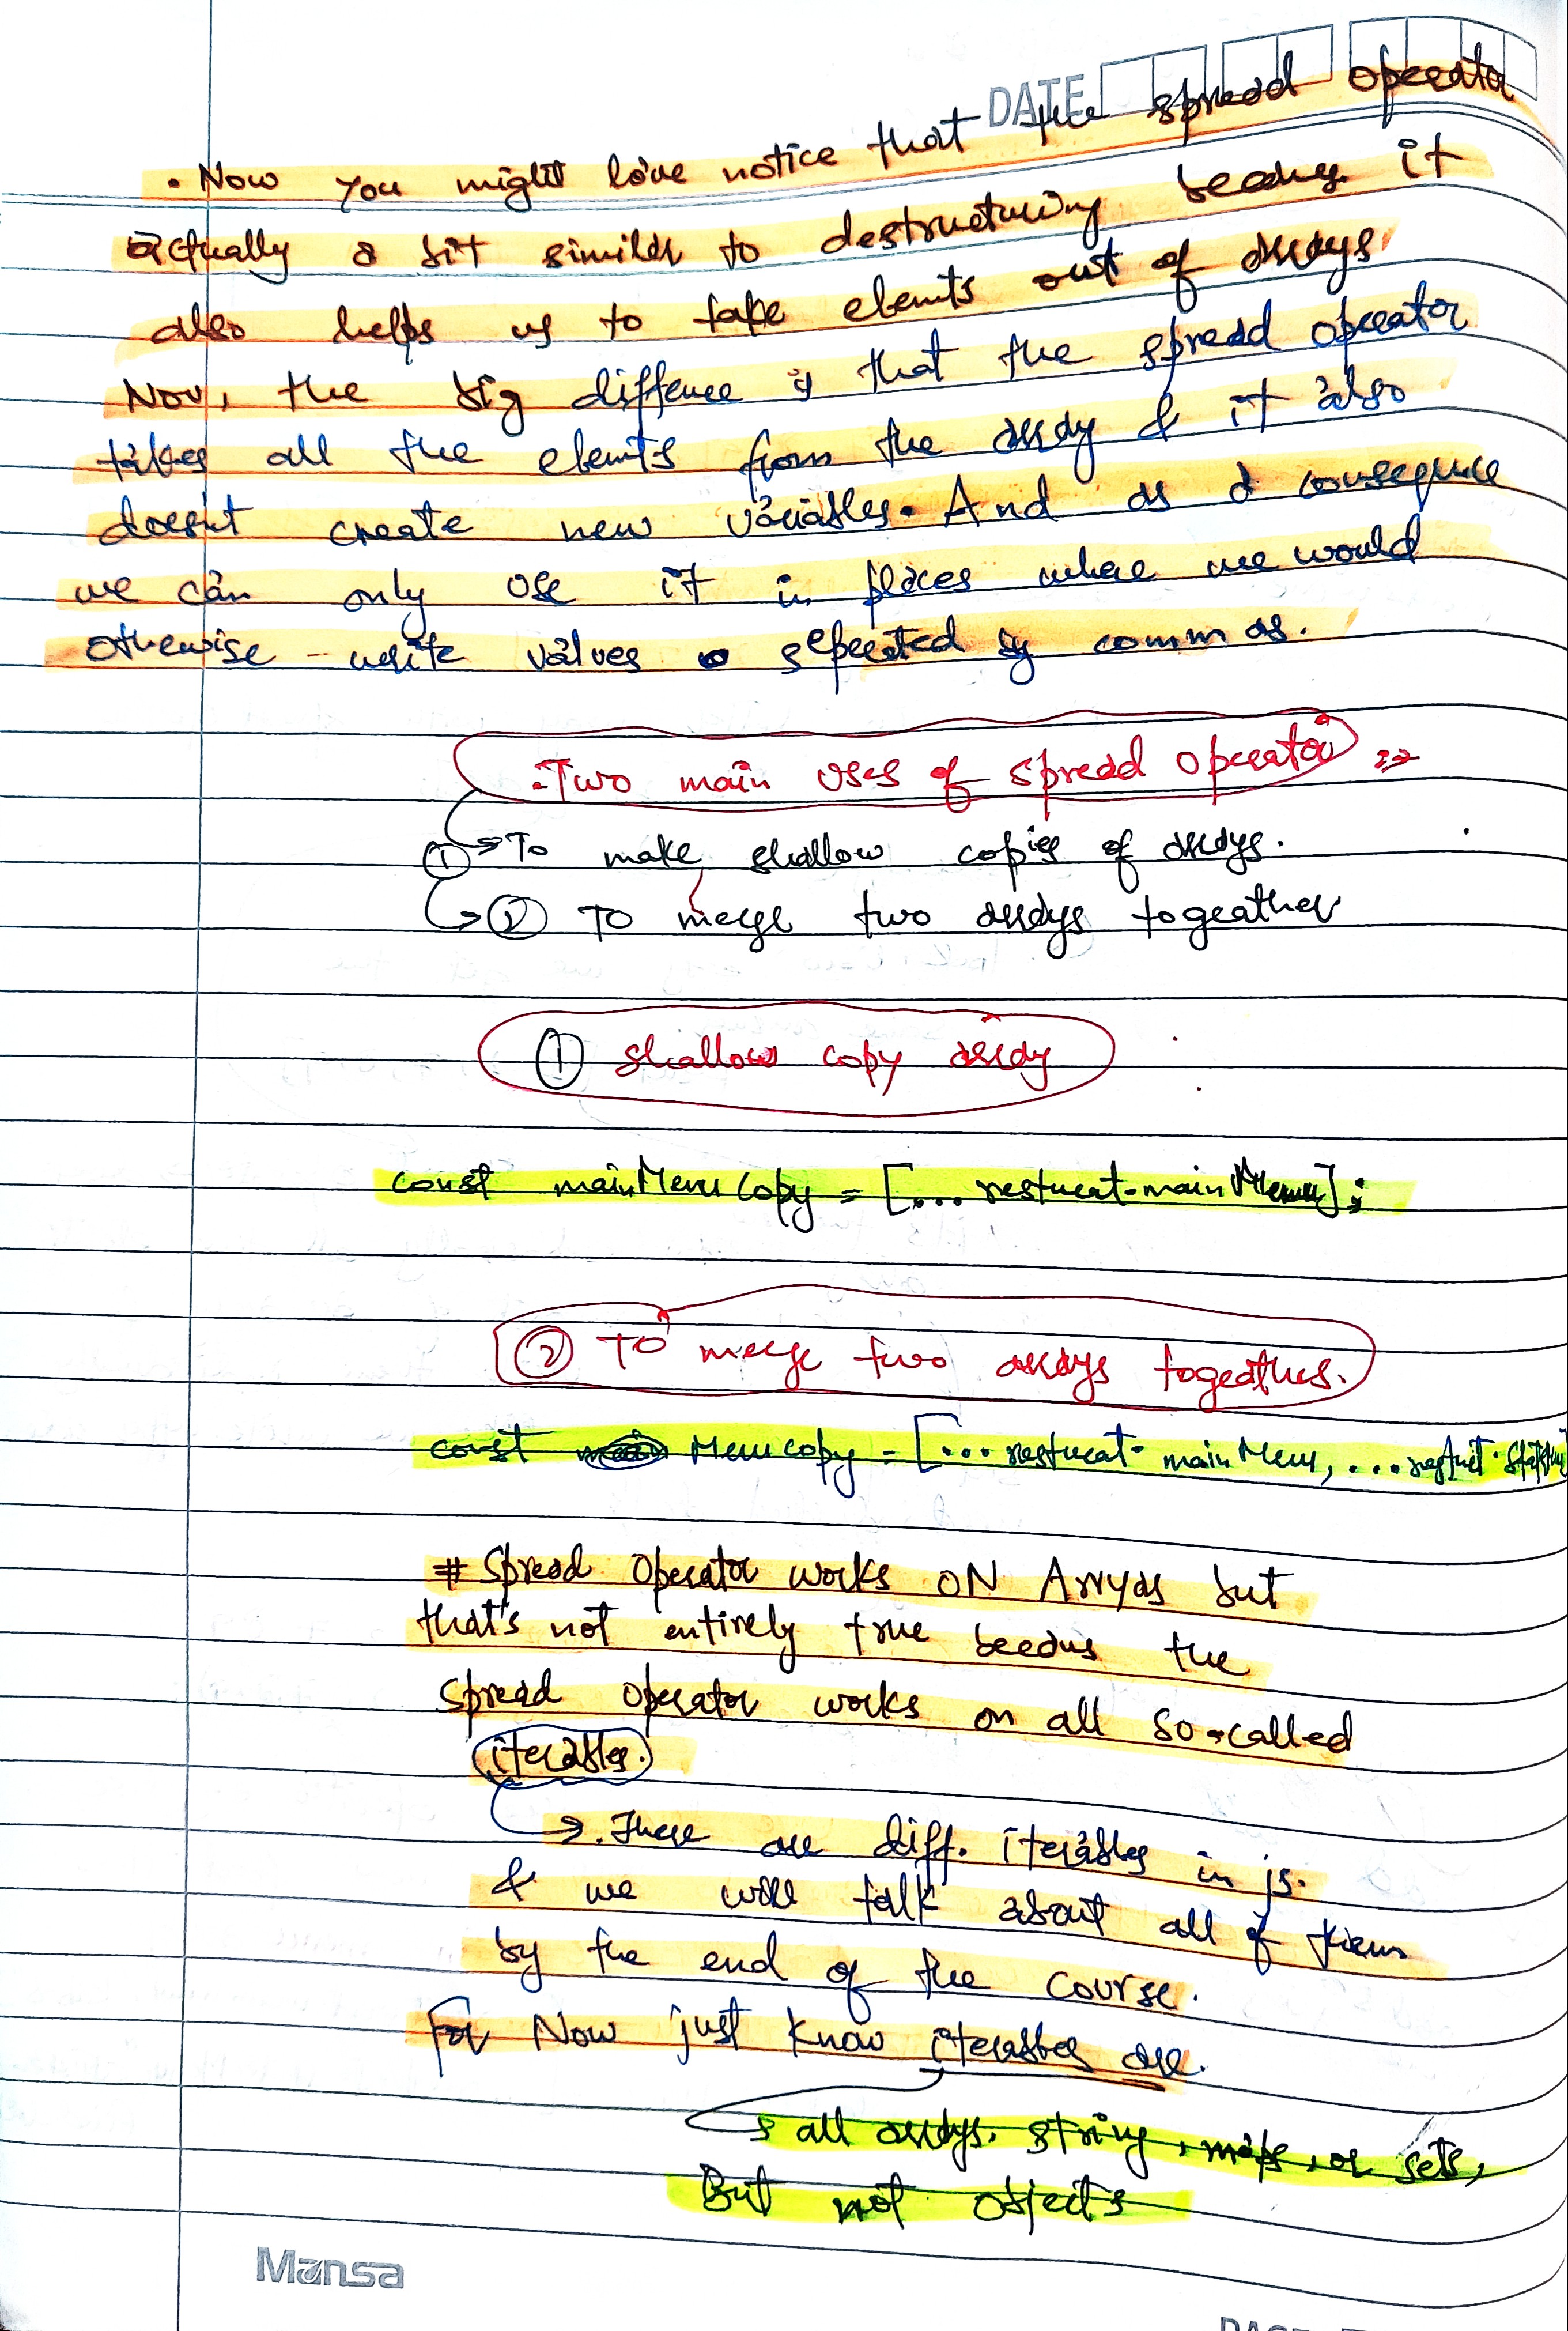 DATE
• Now you might have notice that the spread operator
actually a bit similar to destructuring because it
also helps us to take elemnts out of arrays.
Now, the big diffence is that the spread operator
takes all the elemnts from the array & it also
doesn't create new variables. And as a consequnce
we can only use it in places where we would
otherwise write values seperated by commas.
:Two main uses of spread operator :→
① → To make shallow copies of arrays.
→ ② To merge two arrays togeather
① shallow copy array
const mainMenuCopy = [... restucat.mainMenu];
② To merge two arrays togeather.
const Menucopy = [... restucat. mainMenu, ...
# Spread Operator works ON Arryas but
that's not entirely true becaus the
spread operator works on all so-called
iterables.
→ . There are diff. iterables in js.
& we will talk about all of them
by the end of the course.
For Now just know iterables are.
→ all arrays, string, maps, or sets,
But not objects
Mansa